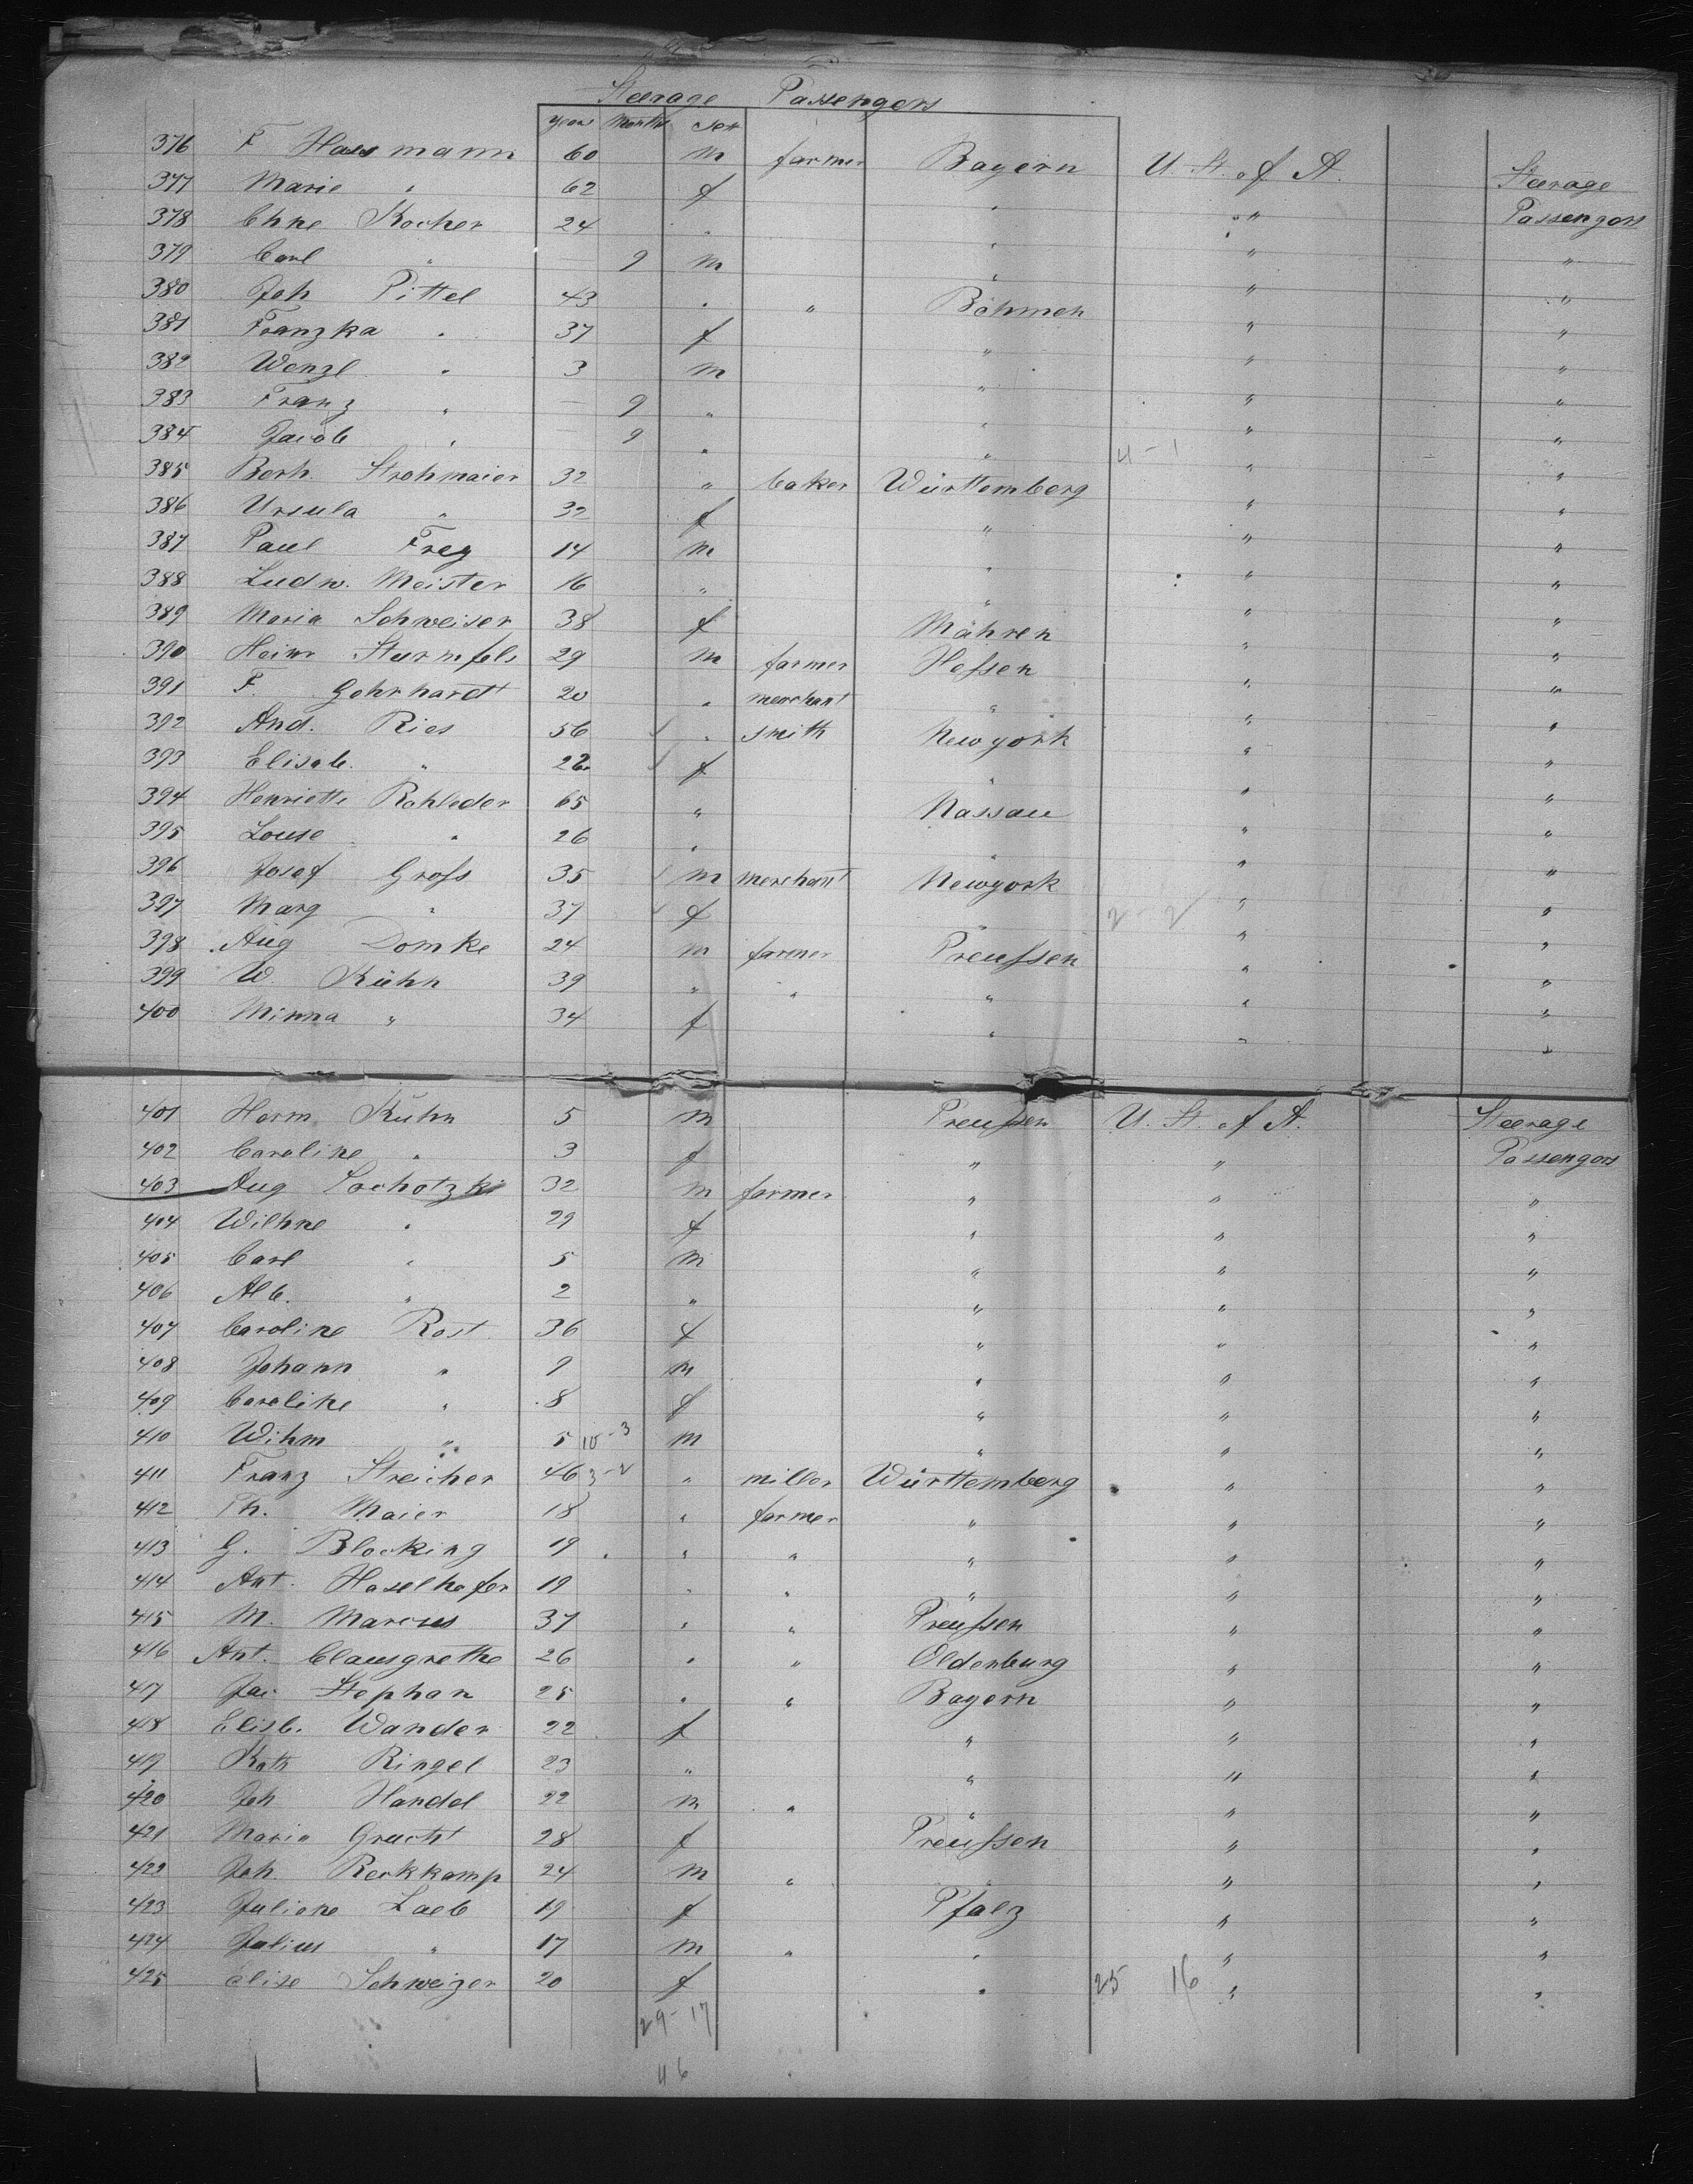 Steerage Passengers
years Months sex
376 F Hausmann 60 m farmer Bayern U. St. of A. Steerage
377 Marie " 62 f " " Passengers
378 Chne Kocher 24 " " " "
379 Carl " 9 m " " "
380 Joh Pittel 43 " " Böhmen " "
381 Franzka " 37 f " " "
382 Wenzl " 3 m " " "
383 Franz " — 9 " " " "
384 Jacob " — 9 " " 4-1 " "
385 Berh. Strohmaier 32 " baker Württemberg " "
386 Ursula " 32 f " " "
387 Paul Frey 14 m " " "
388 Ludw. Meister 16 " " " "
389 Maria Schweiser 38 f Mähren " "
390 Heinr Sturmfels 29 m farmer Hessen " "
391 F. Gehrhardt 20 " merchant " " "
392 And. Ries 56 " smith Newyork " "
393 Elisab. " 22 f " " "
394 Henriette Rohleder 65 " Nassau " "
395 Louse " 26 " " " "
396 Josef Gross 35 m merchant Newyork " "
397 Marg " 37 f " 2-2 " "
398 Aug Domke 24 m farmer Preussen " "
399 W. Kühn 39 " " " " "
400 Minna " 34 f " " "
401 Herm Kühn 5 m Preussen U. St. of A. Steerage
402 Caroline " 3 f " " Passengers
403 Aug Sochotzki 32 m farmer " " "
404 Wilhne " 29 f " " "
405 Carl " 5 m " " "
406 Alb. " 2 " " " "
407 Caroline Rost 36 f " " "
408 Johann " 9 m " " "
409 Caroline " 8 f " " "
410 Wihm " 5 10-3 m " " "
411 Franz Streicher 46 3-2 " miller Württemberg " "
412 Th. Maier 18 " farmer " " "
413 G. Blocking 19 " " " " "
414 Ant. Haselhofer 19 " " " " "
415 M. Marcus 37 " " Preussen " "
416 Ant. Clausgrethe 26 " " Oldenburg " "
417 Jac Stephan 25 " " Bayern " "
418 Elisb. Wander 22 f " " "
419 Kath Ringel 23 " " " "
420 Joh Handel 22 m " " " "
421 Maria Gracht 28 f Preussen " "
422 Joh. Reckkamp 24 m " " " "
423 Juliane Laeb 19 f Pfalz " "
424 Julius " 17 m " " " "
425 Elise Schweizer 20 f " 25 16 " "
29-17
46